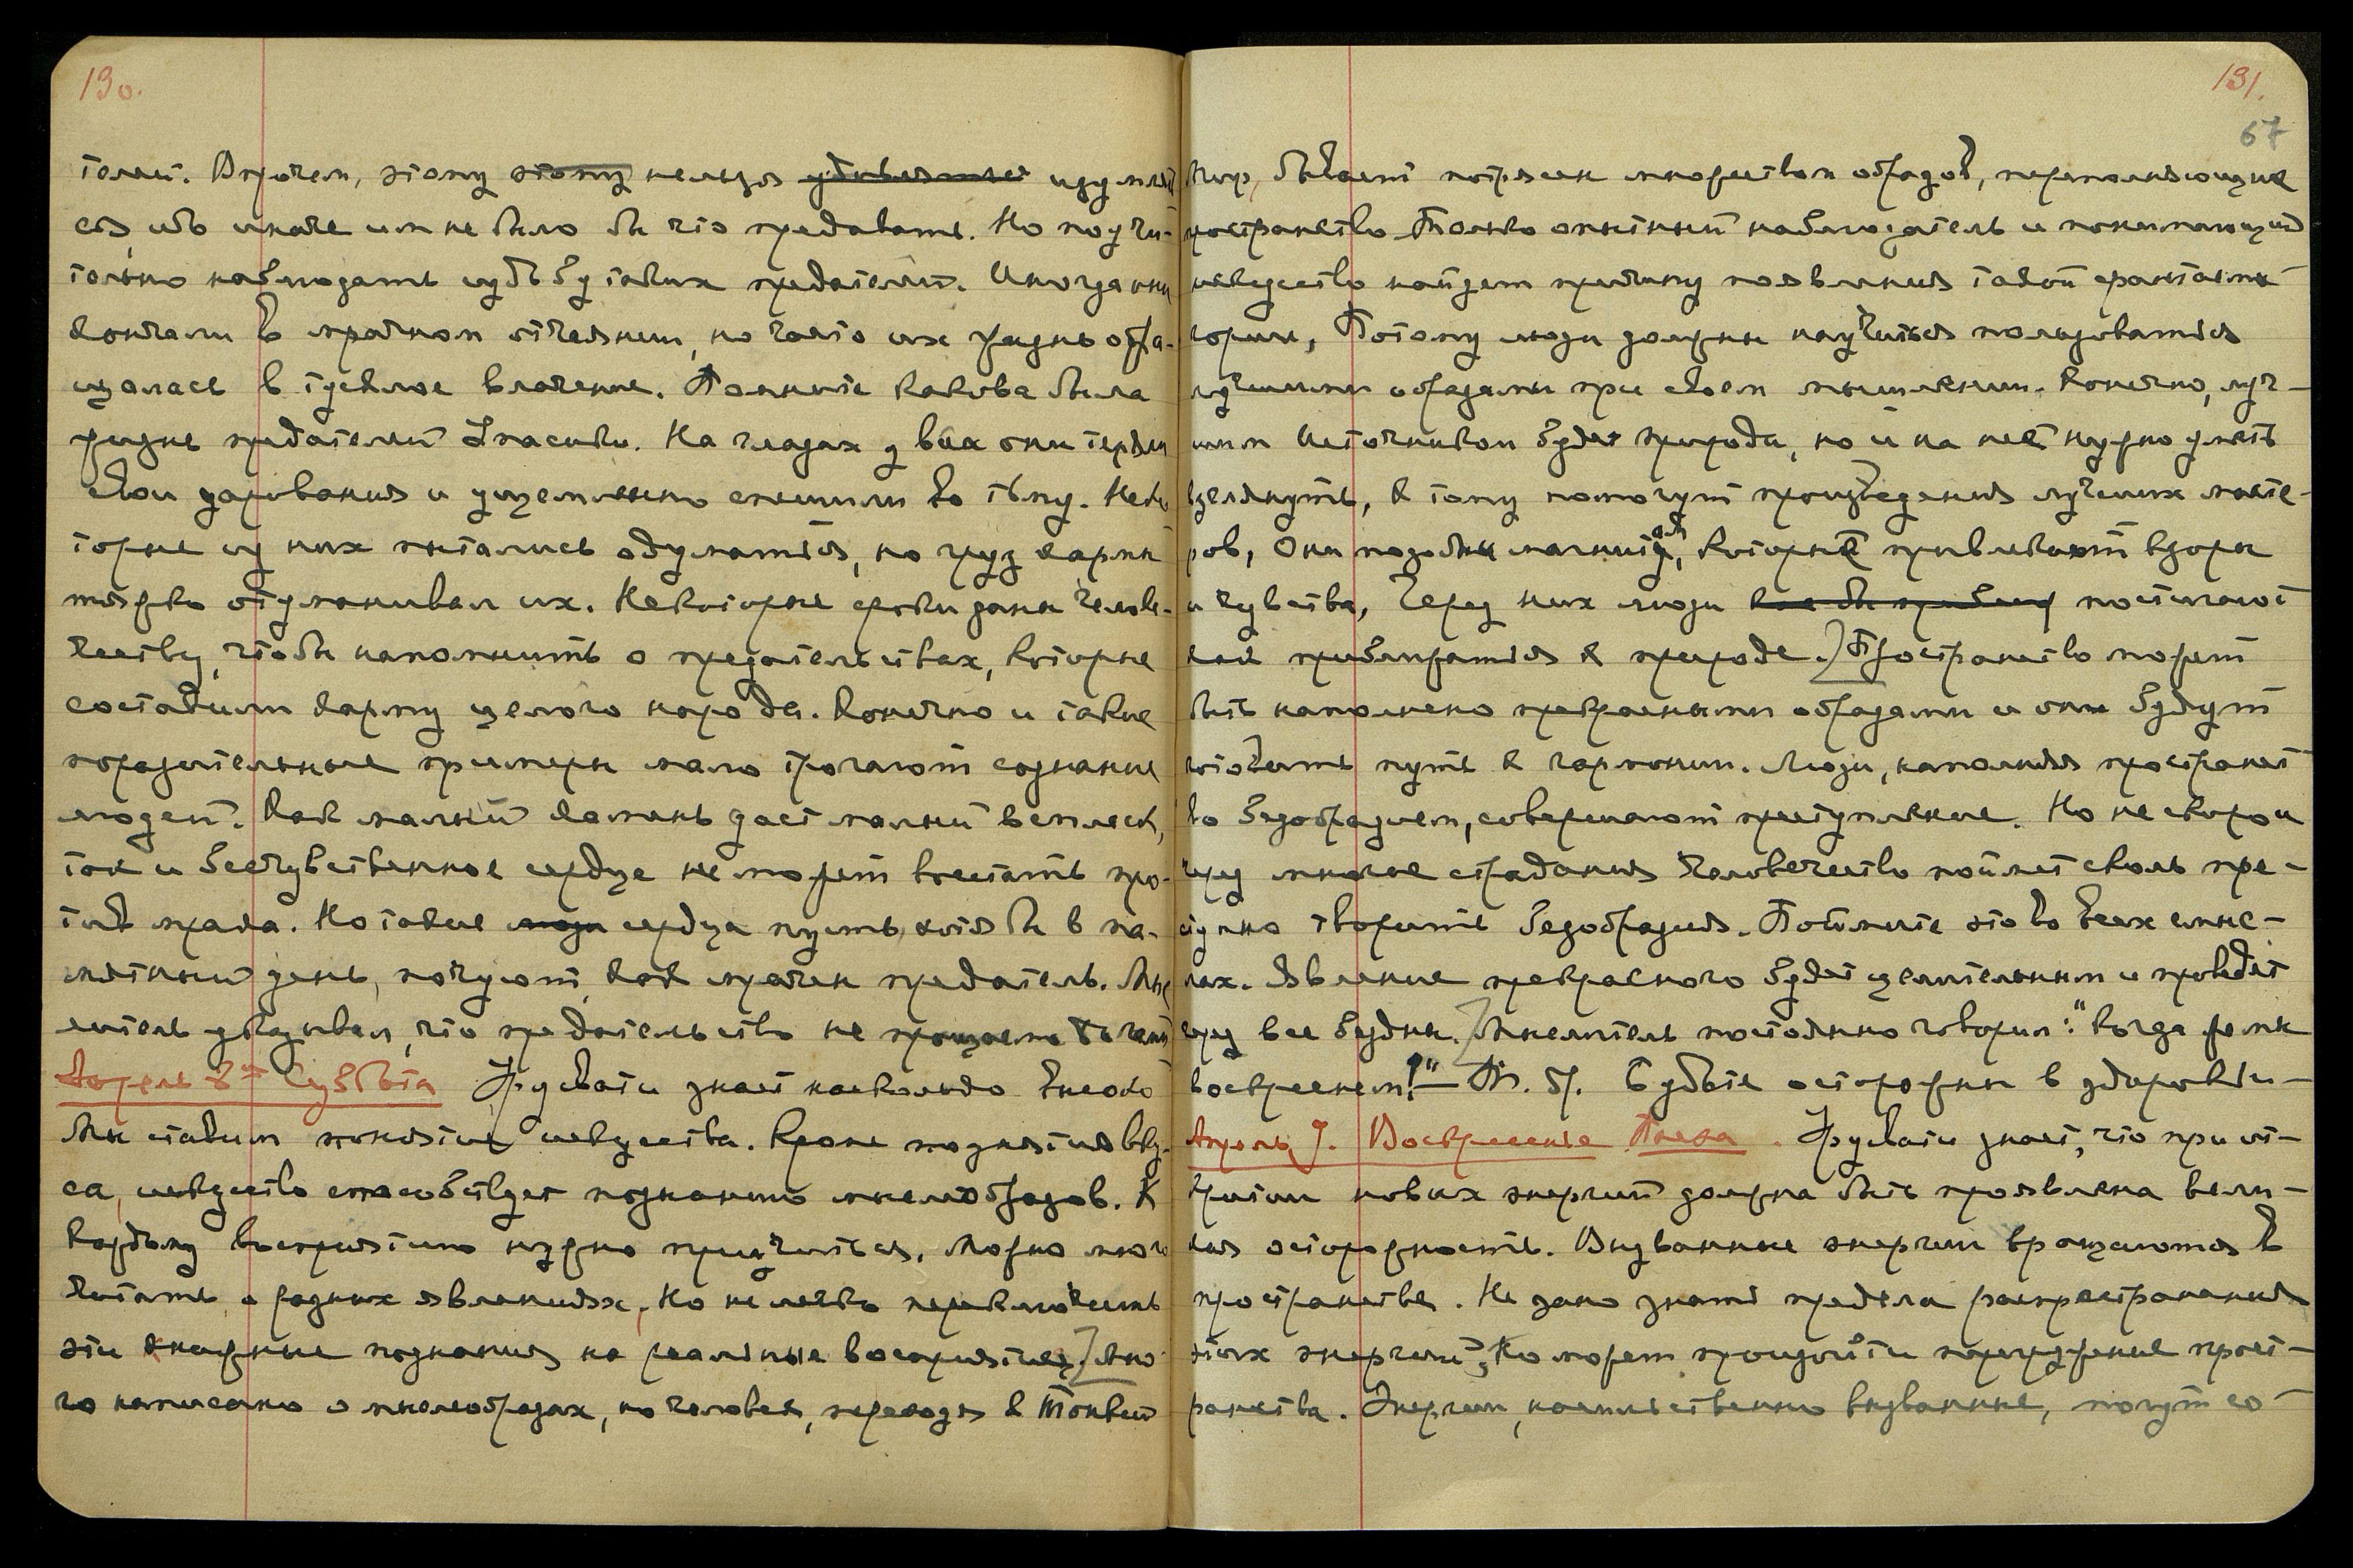 130.
телей. Впрочем, этому этому нельзя удивляться изумлять
ся, ибо иначе им не было бы что предавать. Но поучи-
тельно наблюдать судьбу таких предателей. Иногда они
кончали в мрачном отчаянии, но часто их жизнь обра-
щалась в тусклое влачение. Помните какова была
жизнь предателей Упасики. На глазах у всех они теряли
свои дарования и ущемленно спешили во тьму. Неко
торые из них пытались одуматься, но груз кармы
тяжко отуманивал их. Некоторые сроки даны челове-
честву, чтобы напомнить о предательствах, которые
составили карму целого народа. Конечно и такие
поразительные примеры мало трогают сознание
людей. Как малый камень даст малый всплеск,
так и бесчувственное сердце не может восстать про-
тив мрака. Но такие люди сердца пусть, хотя бы в па-
мятный день, почуют, как мрачен предатель. Мыс
литель указывал, что предательство не прощаемо
Апрель 8ое Суббота Урусвати знает насколько высоко
Мы ставим понятие искусства. Кроме поднятия вку-
са, искусство способствует познанию мыслеобразов. К
каждому восприятию нужно приучиться. Можно много
читать о разных явлениях, но не легко переключить
эти книжные познания на реальные восприятия. Мно
го написано о мыслеобразах, но человек, переходя в Тонкий
131.
67
Мир, бывает потрясен множеством образов, переполняющих
пространство. Только опытный наблюдатель и понимающий
искусство найдет причину появления такой фантасма
гории, Потому люди должны научиться пользоваться
лучшими образами при своем мышлении. Конечно, луч-
шим источником будет природа, но и на неё нужно уметь
взглянуть, к тому помогут произведения лучших масте-
ров, Они подобны магнитам, которые привлекают взоры
и чувства, Через них люди как бы приближ постигают
как приближаться к природе. Пространство может
быть наполнено прекрасными образами и они будут
готовить путь к гармонии. Люди, наполняя пространст
во безобразием, совершают преступление. Но не скоро и
через многие страдания человечество поймет сколь пре-
ступно творить безобразия. Поймите это во всех смыс-
лах. Явление прекрасного будет целительным и проведет
через все бездны. Мыслитель постоянно говорил: "Когда же мы
воскреснем!" — Бр. Будьте осторожны в здоровьи —
Апрель 9. Воскресенье Пасха. Урусвати знает, что при от-
крытии новых энергий должна быть проявлена вели-
кая осторожность. Вызванные энергии вращаются в
пространстве. Не дано знать предела распространения
этих энергий, но может произойти перегружение прост-
ранства. Энергии, насильственно вызванные, могут со-